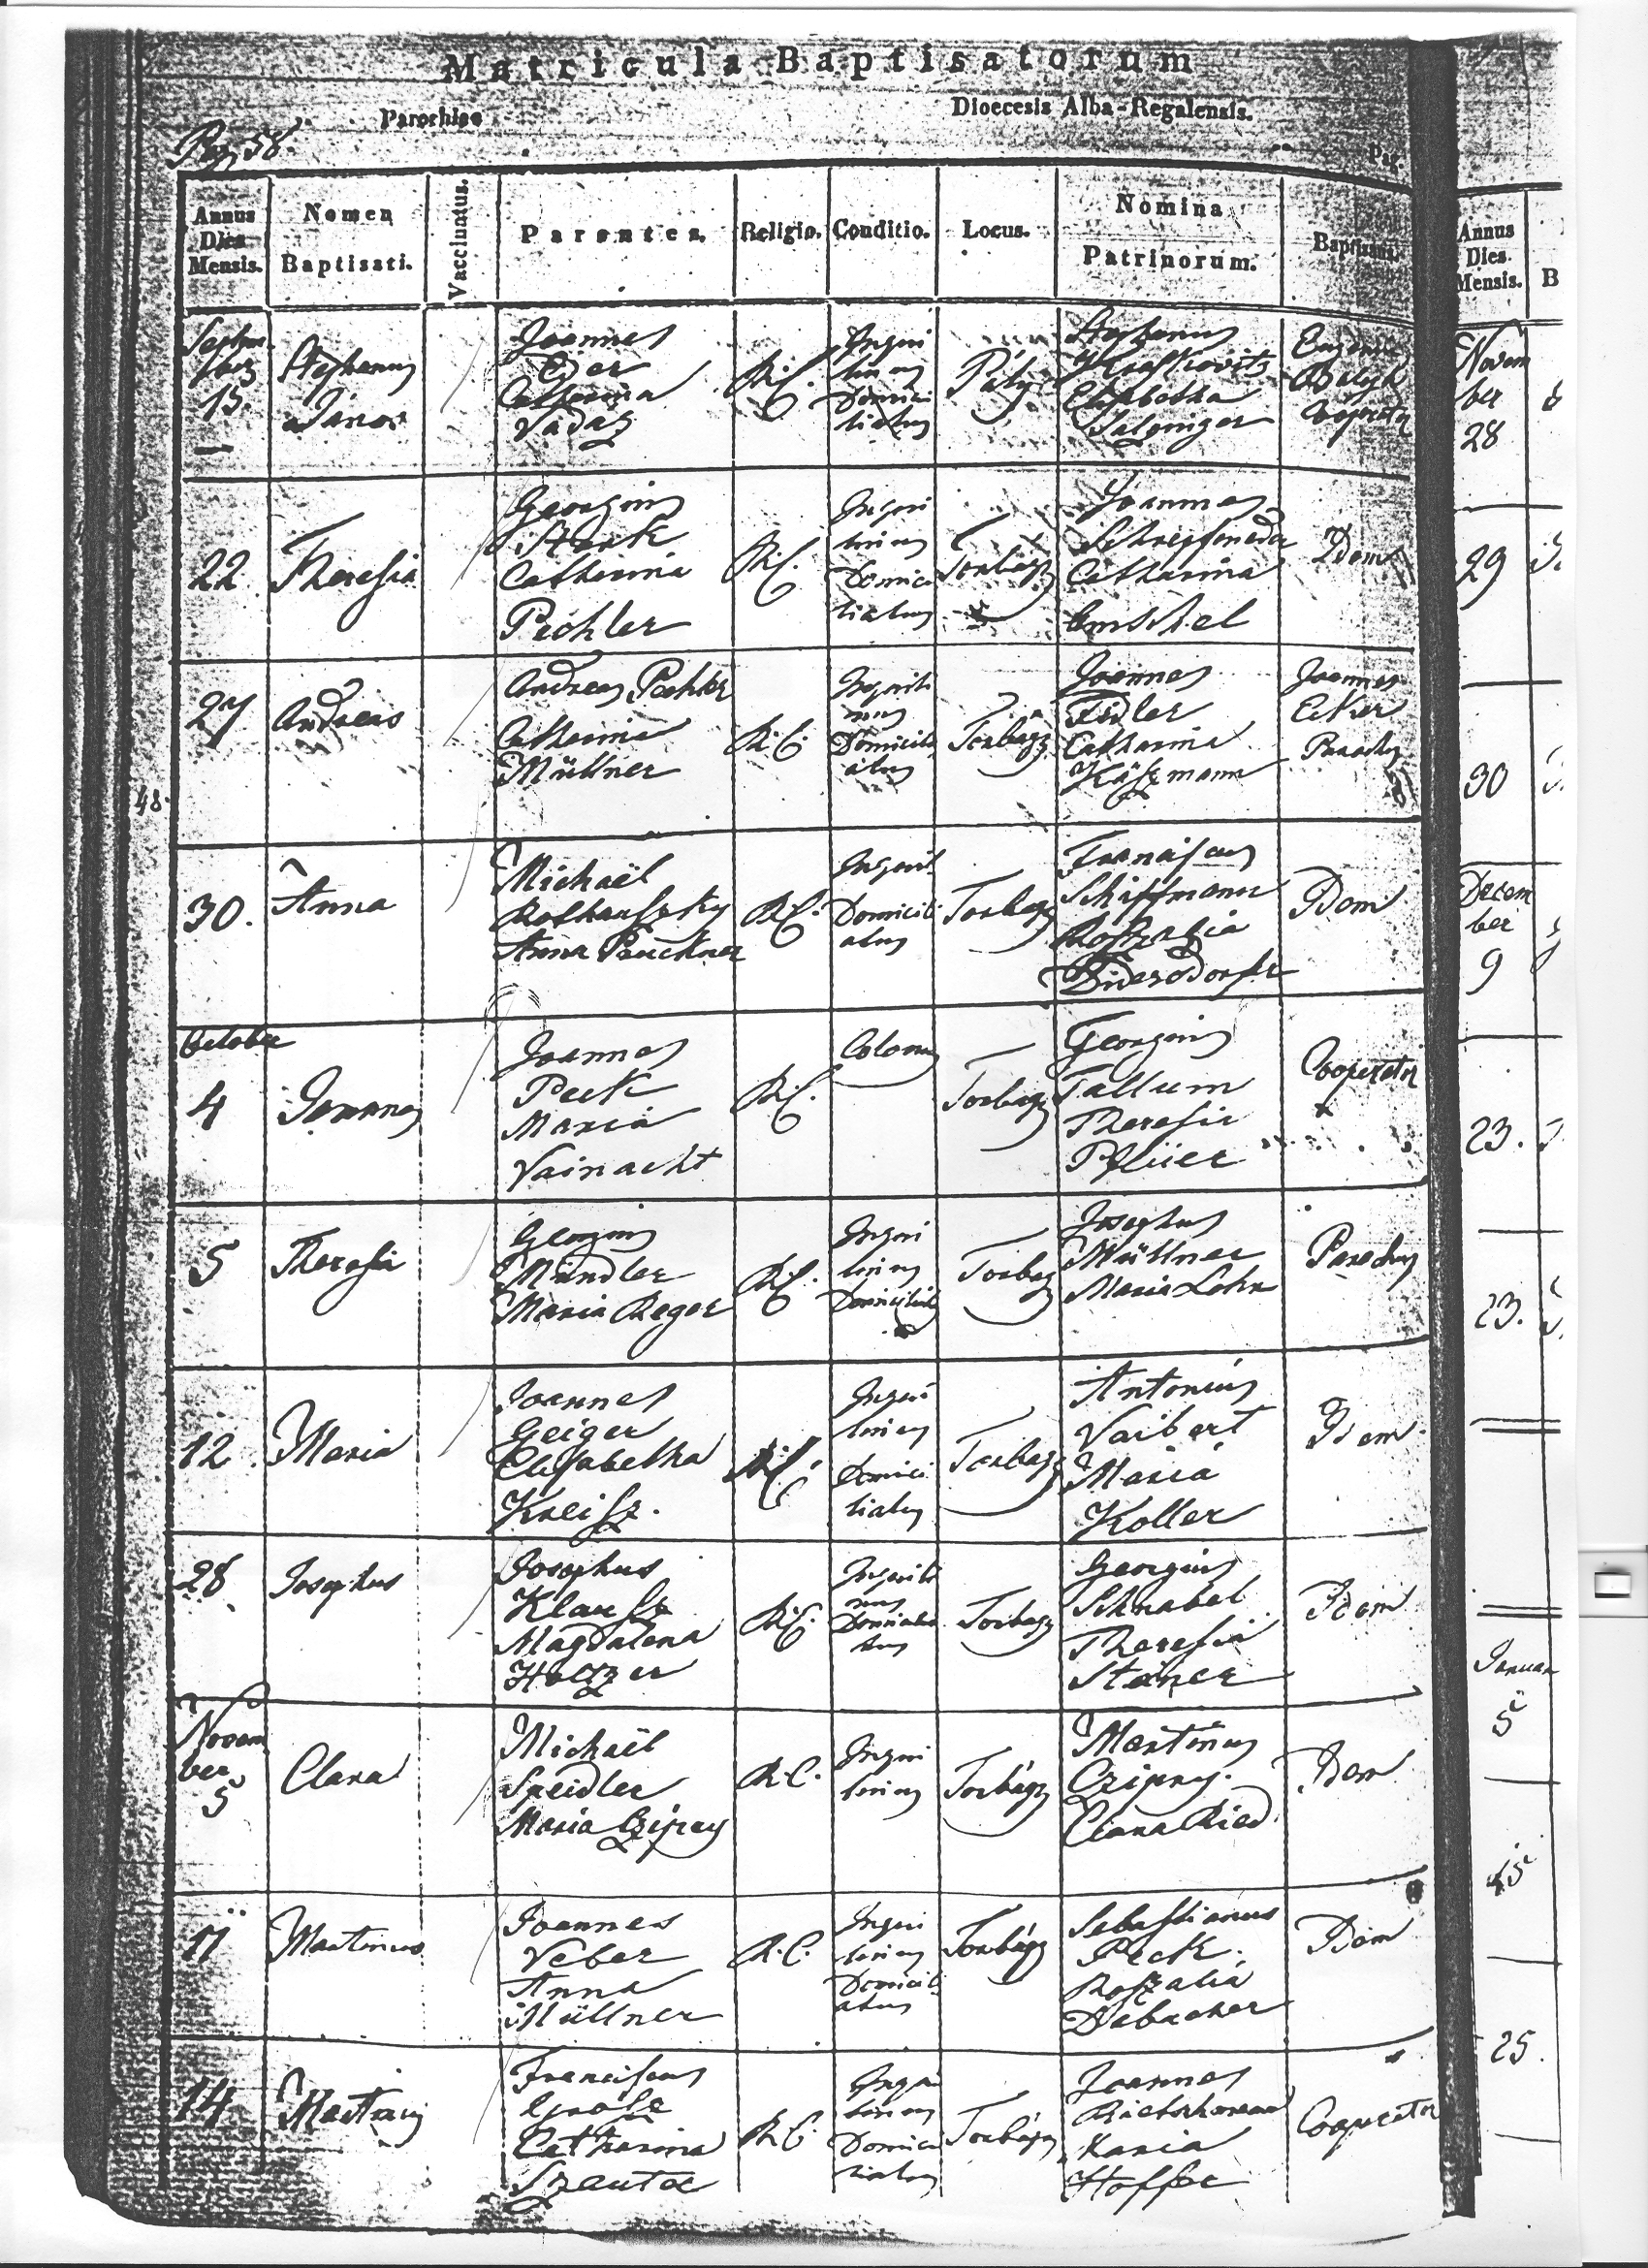 Matricula Baptisatorum
Parochiae
Dioecesis Alba-Regalensis.
Pag. 58.
Pag.
Annus Dies Mensis.
Nomen Baptisati.
Vaccinatus.
Parentes.
Religio.
Conditio.
Locus.
Nomina Patrinorum.
Baptisans.
Septem
ber
15.
Stephanus
János
Joannes
Eder
Catharina
Vadász
R.C.
Inqui
linus
Domici
liatus
Páty
Stephanus
Elisabetha
Salzniger
Cooperator
22.
Theresia
Georgius
Stark
Catharina
Pechler
R.C.
Inqui
linus
Domici
liatus
Torbágy
Joannes
Catharina
Amschel
Idem
27
Andreas
Andreas Pechler
Catharina
Müllner
R.C.
Inquili
nus
Domicili
atus
Torbágy
Joannes
Fidler
Catharina
Käszmann
Joannes
Eker
Parochus
48.
30.
Anna
Michaël
Rothauszky
Anna Pauckner
R.C.
Inquil
Domicili
atus
Torbágy
Franciscus
Schiffmann
Roszalia
Bidersdorfer
Idem
October
4
Joannes
Joannes
Peck
Maria
Vainacht
R.C.
Colonus
Torbágy
Georgius
Tallum
Theresia
Cooperator
5
Theresia
Georgius
Mindler
Maria Reger
R.C.
Inqui
linus
Domiciliat
Torbágy
Josephus
Müllner
Maria Lohn
Parochus
12.
Maria
Joannes
Geiger
Elisabetha
Kreisz.
R.C.
Inqui
linus
Domici
liatus
Torbágy
Antonius
Vaibert
Maria
Koller
Idem.
28
Josephus
Josephus
Klausz
Magdalena
Holtzer
R.C.
Inquili
nus
Domicilia
tus
Torbágy
Georgius
Schnabel
Theresia
Steiner
Idem
Novem
ber
5
Clara
Michaël
Speidler
Maria Czipry
R.C.
Inqui
linus
Torbágy
Martinus
Czipry.
Clara Ried
Idem
11
Martinus
Joannes
Veber
Anna
Müllner
R.C.
Inqui
linus
Domicili
atus
Torbágy
Sebastianus
Peck.
Roszalia
Debacher
Idem
14
Martinus
Franciscus
Grosz
Catharina
Szauta
R.C.
Inqui
linus
Domici
liatus
Torbágy
Joannes
Maria
Hoffer
Cooperator
Annus
Dies
Mensis.
B
Novem
ber
28
29
30
Decem
ber
9
23.
23.
Januar
5
15
25.